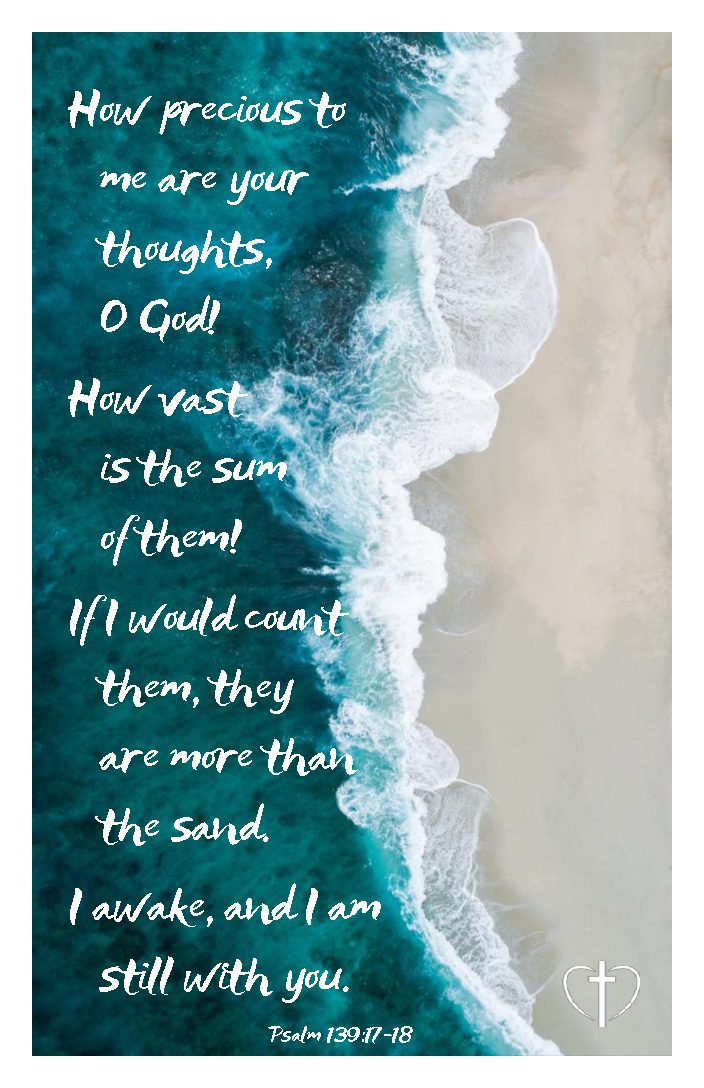 How precious to
me are your
thoughts,
O God!
How vast
is the sum
of them!
If I would count
them, they
are more than
the sand.
I awake, and I am
still with you.
Psalm 139:17-18